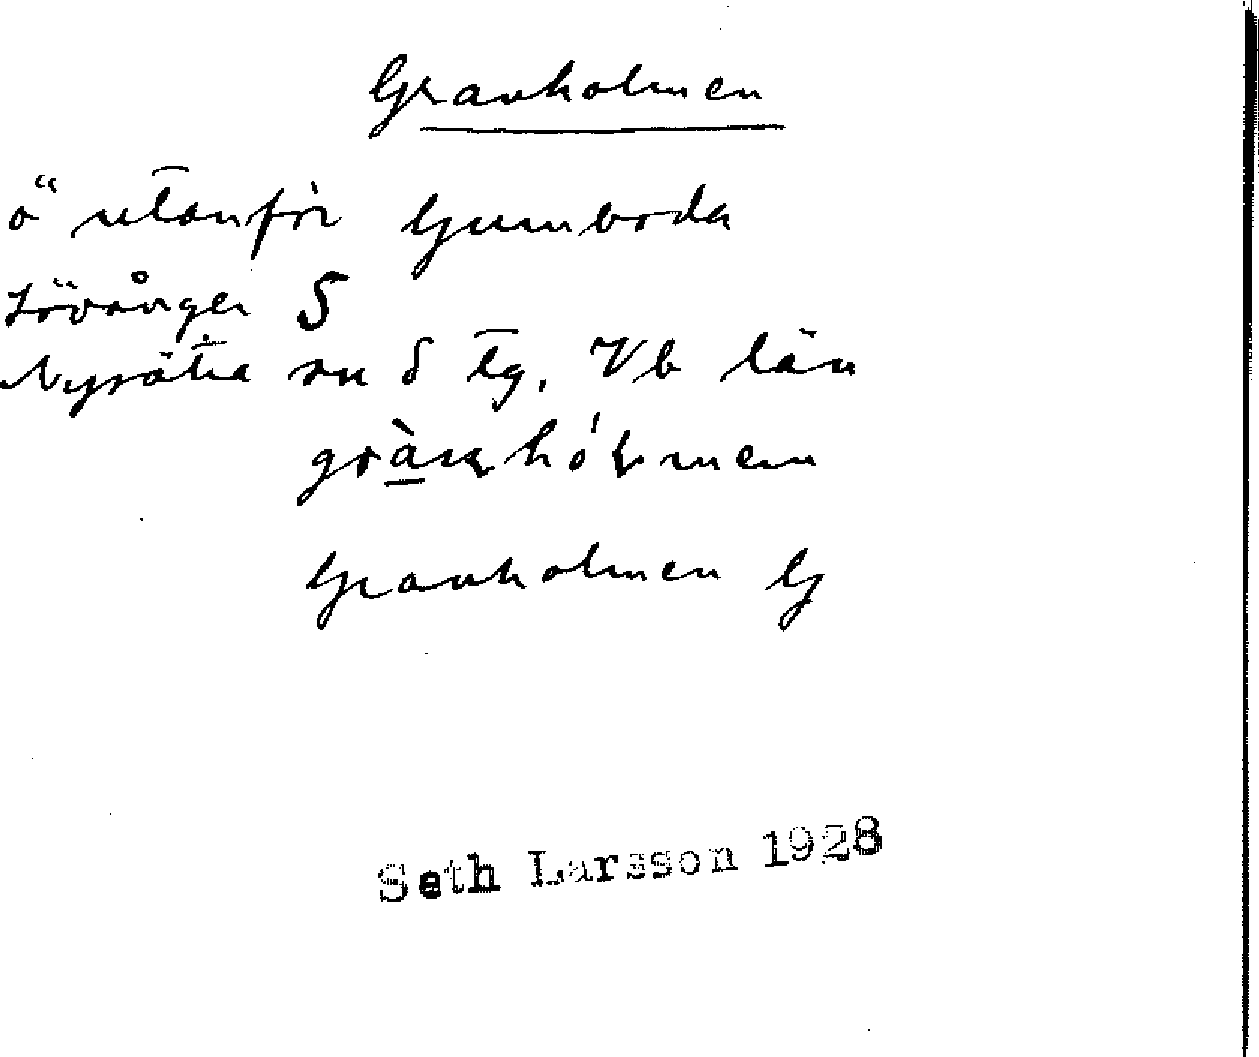 Granholmen
ö utanför Gumboda
Lövånger S
Nysätra sn o tg, Vb län
Granholmen G
Seth Larsson 1928